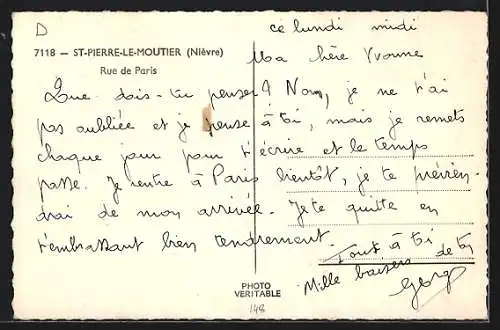 D
ce lundi midi
7118 — ST-PIERRE-LE-MOUTIER (Nièvre)
Rue de Paris
Ma chère Yvonne
Que dois-tu penser ? Non, je ne t'ai
pas oubliée et je pense à toi, mais je remets
chaque jour pour t'écrire et le temps
passe. Je rentre à Paris bientôt, je te prévien-
drai de mon arrivée. Je te quitte en
t'embrassant bien tendrement.
Tout à toi
Mille baisers de ton
PHOTO
VERITABLE
148